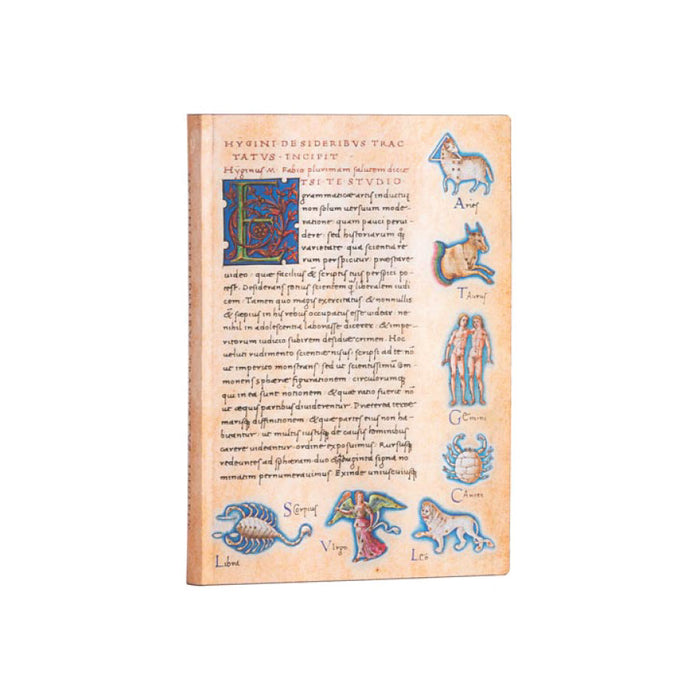 HYGINI DE SIDERIBUS TRAC
TATUS · INCIPIT ·
Hyginus M. Fabio plurimam salutem dicit
ETSI TE STUDIO
grammaticae artis inductum
non solum versuum mode-
ratione quam pauci pervi-
dere · sed historiarum q;
varietate qua scientia re
rum perspicitur praestare
video · quae facilius & scriptis tuis perspici po-
test. Desiderans potius scientem q liberalem iudi
cem · Tamen quo magis exercitatus & nonnullis
& saepius in his rebus occupatus esse videar · ne
nihil in adolescentia laborasse dicerer & impe-
ritorum iudicio subirem desidiae crimen. Hoc
velut rudimento scientiae nisus scripsi ad te no
ut imperito monstrans sed ut scientissimum com
monens sphaerae figurationem circulorumq;
qui in ea sunt notionem · & quae ratio fuerit no
ut aequis partibus dividerentur. Praeterea terrae
marisq; diffinitionem · & quae partes eius non ha
buantur · ut multis iustisq; de causis hominibus
carere videantur ordine exposuimus. Rursusq;
redeuntes ad sphaeram duo & quadraginta signa no
minatim pernumeravimus. Exinde uniuscuiusq;
Aries
Taurus
Gemini
Cancer
Scorpius
Virgo
Leo
Libra